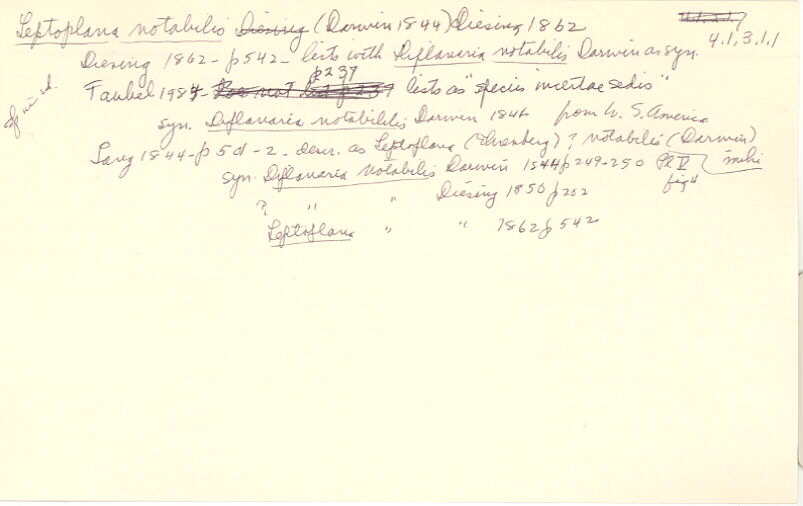 Leptoplana notabilis Diesing (Darwin 1844) Diesing 1862
4.1.3.1.1
Diesing 1862 - p 542 - lists with Diplanaria notabilis Darwin as syn.
p 237
Faubel 1984 - lists as "species incertae sedis"
syn. Diplanaria notabilis Darwin 1844 from S. America
Lang 1844 - p 501 - 2 - descr. as Leptoplana (Ehrenberg) ? notabilis (Darwin) mihi
syn. Diplanaria notabilis Darwin 1844 p 249-250 Pl V
fig 4
? " " Diesing 1850 p 202
Leptoplana " " 1862 p 542